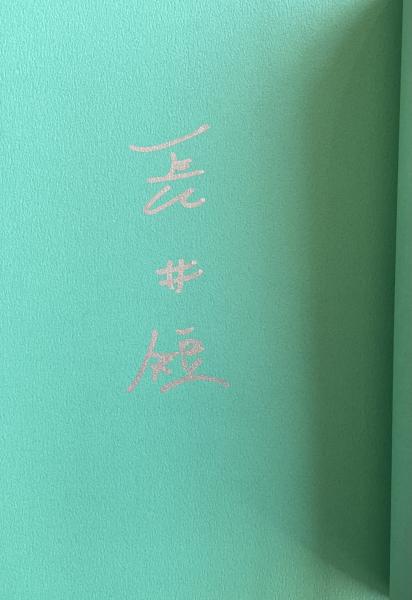 長井短